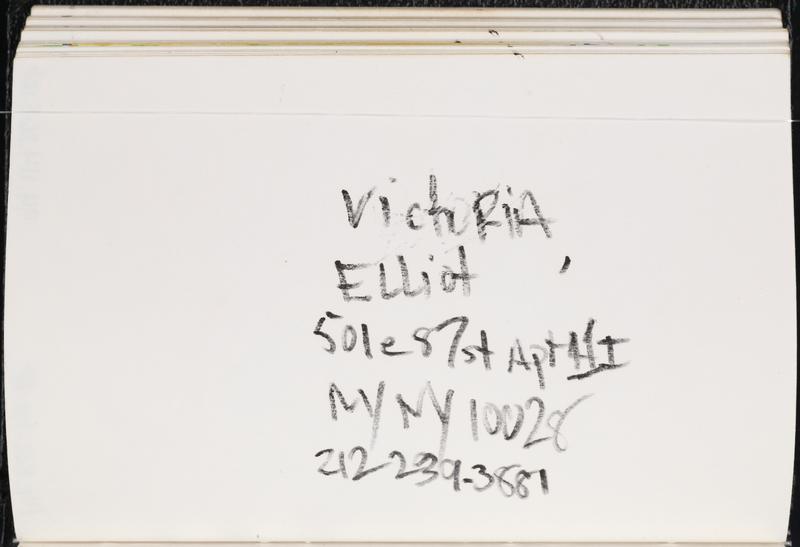 Victoria
Elliot
501 e 87st Apt
NY NY 10028
212-239-3881